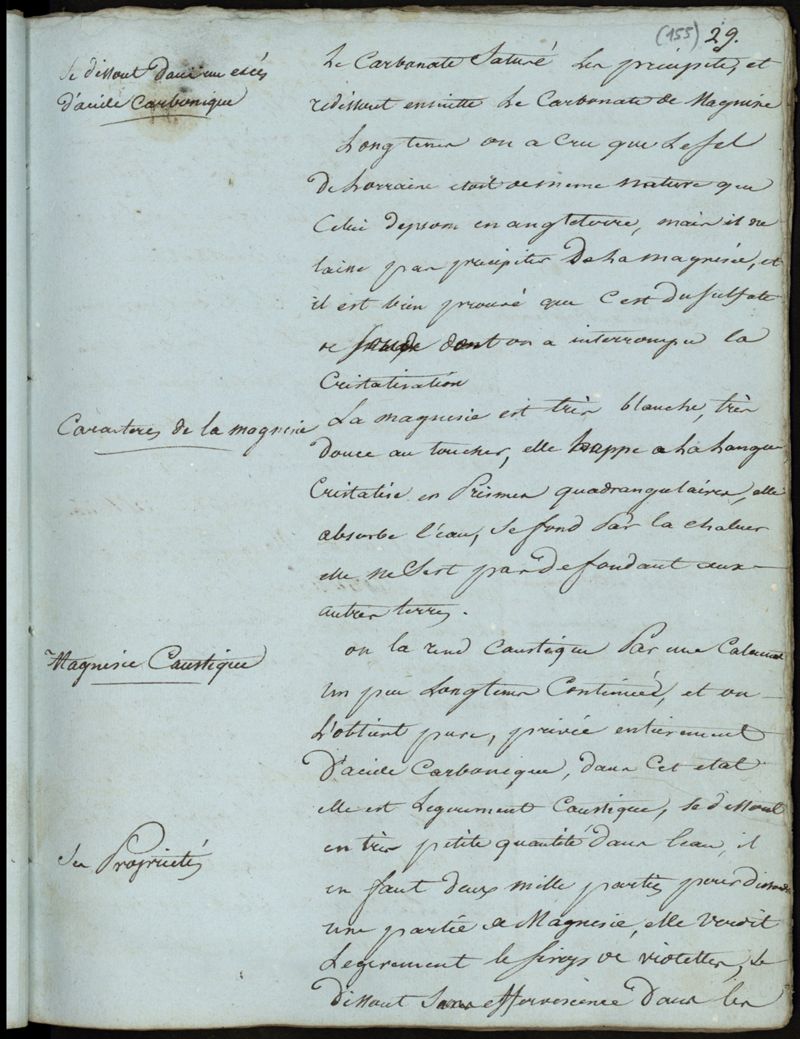 (155) 29.
Se dissout dans un exès
d'acide Carbonique
Le Carbonate Saturé les precipite, et
redissout ensuitte le Carbonate de Magnesie
Longtems on a cru que le sel
de Lorraine etoit de meme nature que
Celui depsom en angleterre, mais il ne
laisse pas precipiter De la magnésie, et
il est bien prouvé que C'est du sulfate
de soude dont on a interrompu la
Cristalisation
Caracteres de la magnesie
La magnesie est très blanche, très
douce au toucher, elle happe a la langue
Cristalise en Prismes quadrangulaires, elle
absorbe l'eau, se fond Par la chaleur
elle ne Sert pas De fondant aux
autres terres.
Magnesie Caustique
on la rend Caustique Par une Calcinat
un peu Longtems Continuée, et on
L'obtient pure, privée entierement
D'acide Carbonique, dans Cet etat
elle est Legerement Caustique, Se dissout
en très petite quantité dans l'eau, il
Ses Proprietés
en faut deux mille parties pour dissoudre
une partie de Magnesie, elle verdit
Legerement le sirop de violettes, se
dissout Sans effervescence Dans les